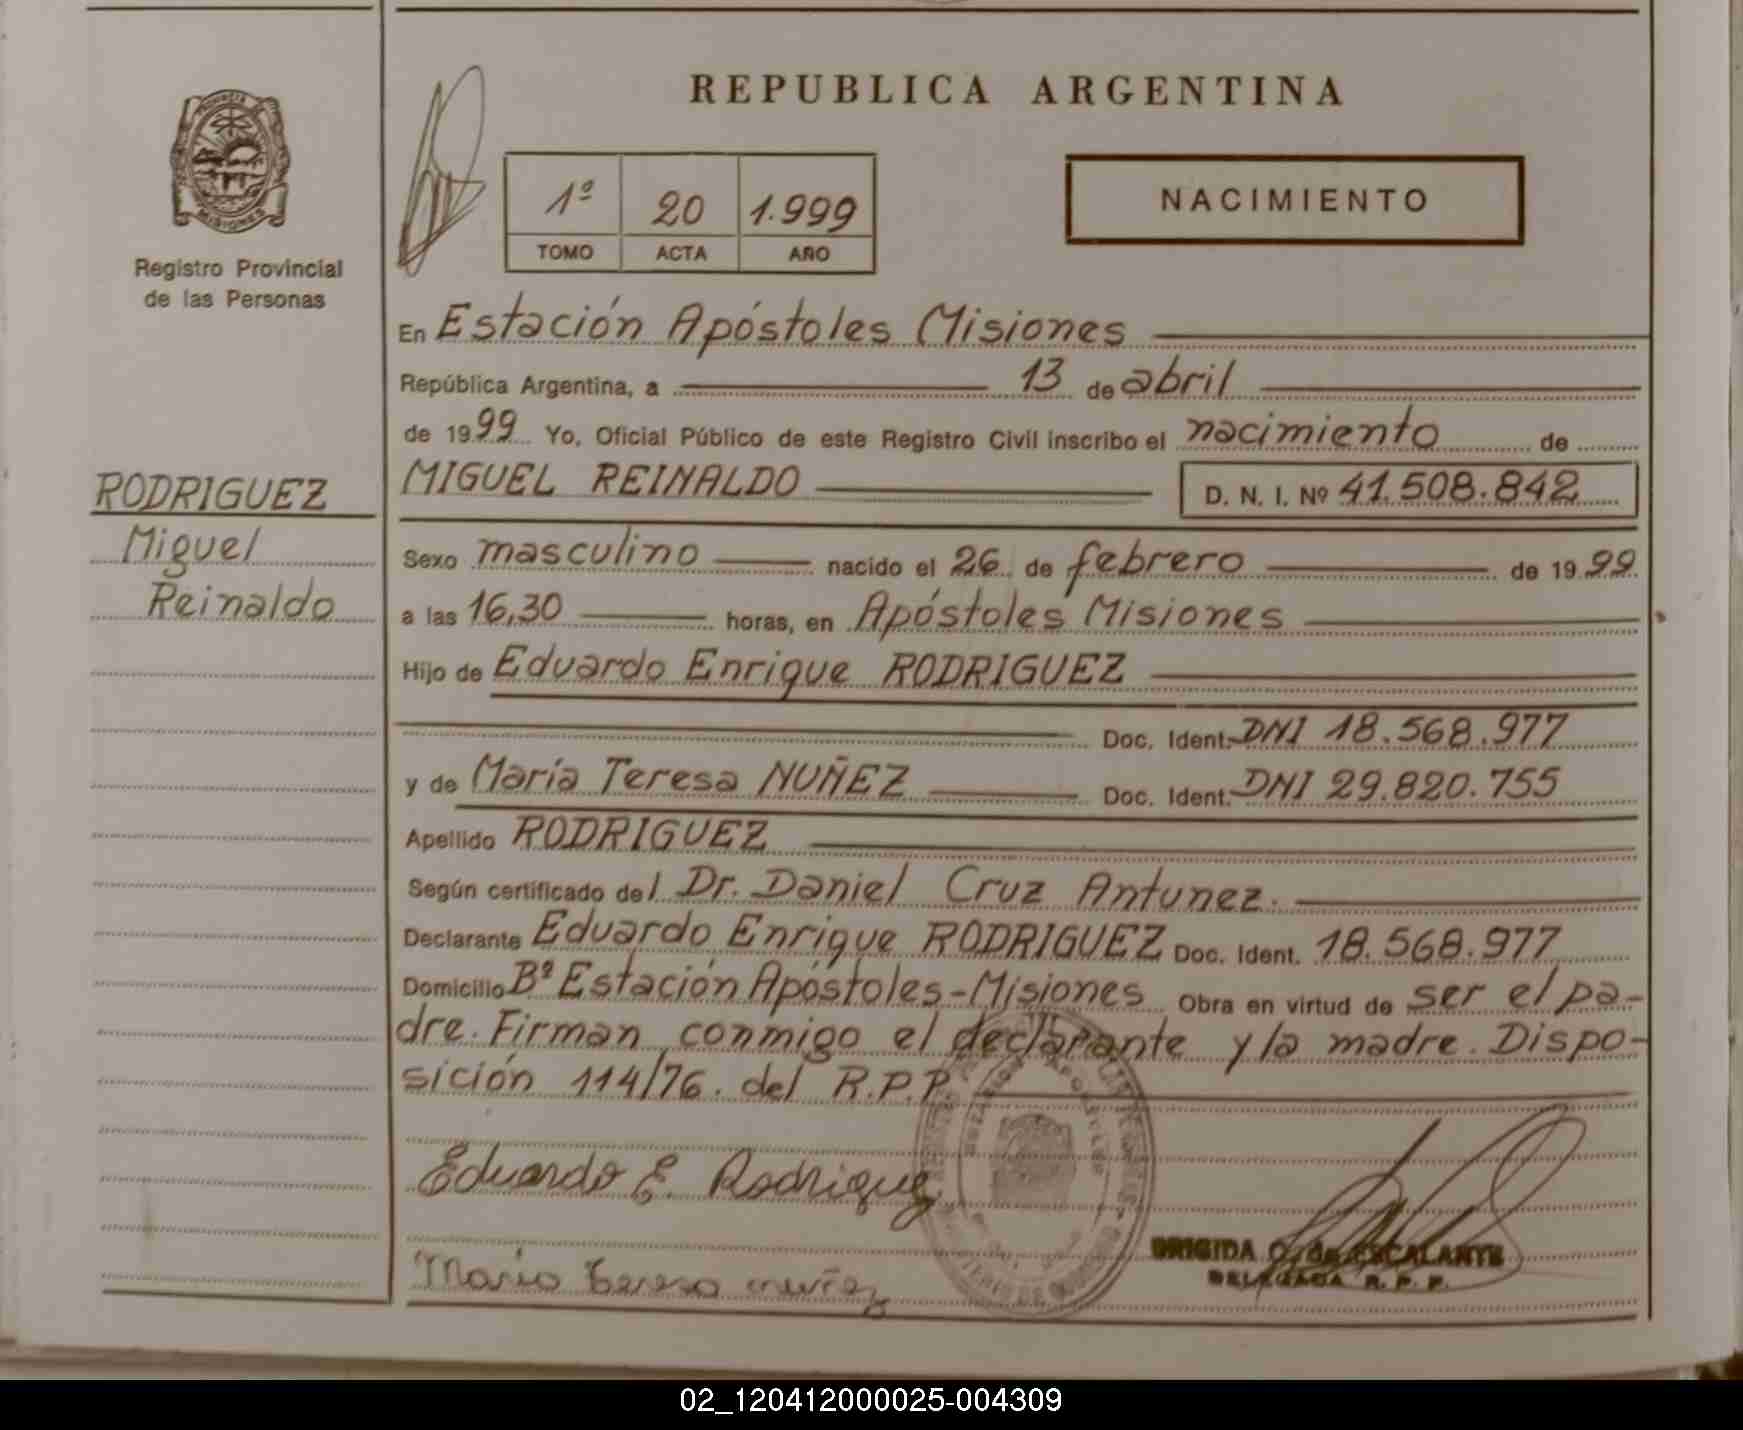 REPUBLICA ARGENTINA
PROVINCIA DE
MISIONES
Registro Provincial
de las Personas
1º 20 1.999
TOMO ACTA AÑO
NACIMIENTO
En Estación Apóstoles Misiones
República Argentina, a 13 de abril
de 1999 Yo, Oficial Público de este Registro Civil inscribo el nacimiento de
MIGUEL REINALDO D. N. I. Nº 41.508.842
RODRIGUEZ
Miguel
Reinaldo
Sexo masculino nacido el 26 de febrero de 1999
a las 16,30 horas, en Apóstoles Misiones
Hijo de Eduardo Enrique RODRIGUEZ
Doc. Ident. DNI 18.568.977
y de María Teresa NUÑEZ Doc. Ident. DNI 29.820.755
Apellido RODRIGUEZ
Según certificado del Dr. Daniel Cruz Antunez.
Declarante Eduardo Enrique RODRIGUEZ Doc. Ident. 18.568.977
Domicilio Bº Estación Apóstoles-Misiones Obra en virtud de ser el pa-
dre. Firman conmigo el declarante y la madre. Dispo-
sición 114/76. del R.P.P.
Eduardo E. Rodriguez
Maria Teresa nuñez
BRIGIDA O. de ESCALANTE
DELEGADA R. P. P.
02_120412000025-004309